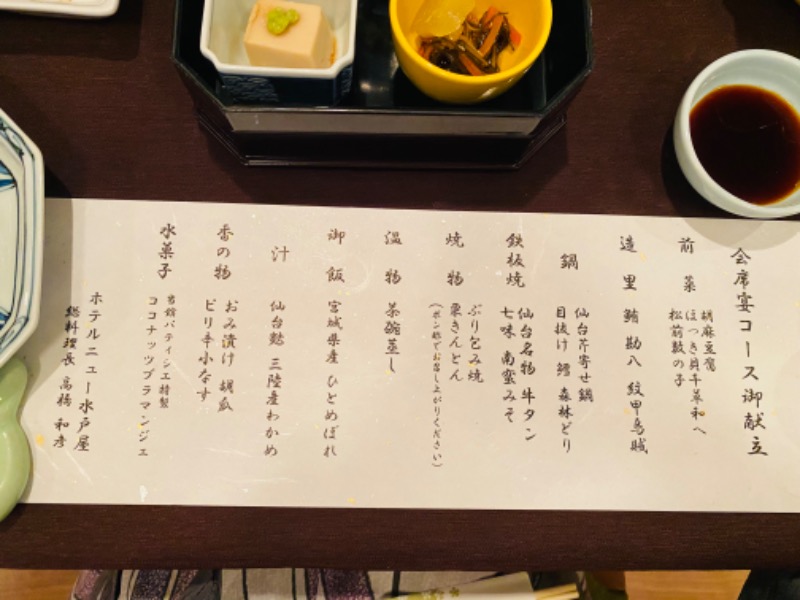 会席宴コース御献立
前菜
胡麻豆腐
ほっき貝千草和へ
松前数の子
造里
鮪 勘八 紋甲烏賊
鍋
仙台芹寄せ鍋
目抜け 鱈 森林どり
鉄板焼
仙台名物 牛タン
七味 南蛮みそ
焼物
ぶり包み焼
栗きんとん
(ポン酢でお召し上がりください)
温物
茶碗蒸し
御飯
宮城県産 ひとめぼれ
汁
仙台麩 三陸産わかめ
香の物
おみ漬け 胡瓜
ピリ辛小なす
水菓子
当館パティシエ特製
ココナッツブラマンジェ
ホテルニュー水戸屋
総料理長 高橋 和彦